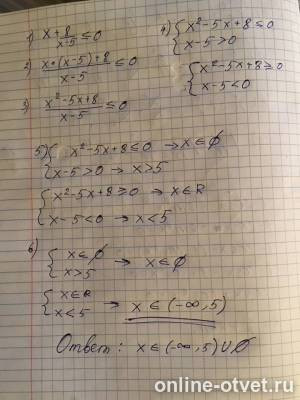 1) x + 8/(x-5) ≤ 0
2) (x·(x-5)+8)/(x-5) ≤ 0
3) (x²-5x+8)/(x-5) ≤ 0
4) { x²-5x+8 ≤ 0
x-5 > 0
{ x²-5x+8 ≥ 0
x-5 < 0
5) { x²-5x+8 ≤ 0 → x ∈ ∅
x-5 > 0 → x > 5
{ x²-5x+8 ≥ 0 → x ∈ R
x-5 < 0 → x < 5
6) { x ∈ ∅
x > 5 → x ∈ ∅
{ x ∈ R
x < 5 → x ∈ (-∞, 5)
Ответ: x ∈ (-∞, 5) U ∅
online-otvet.ru